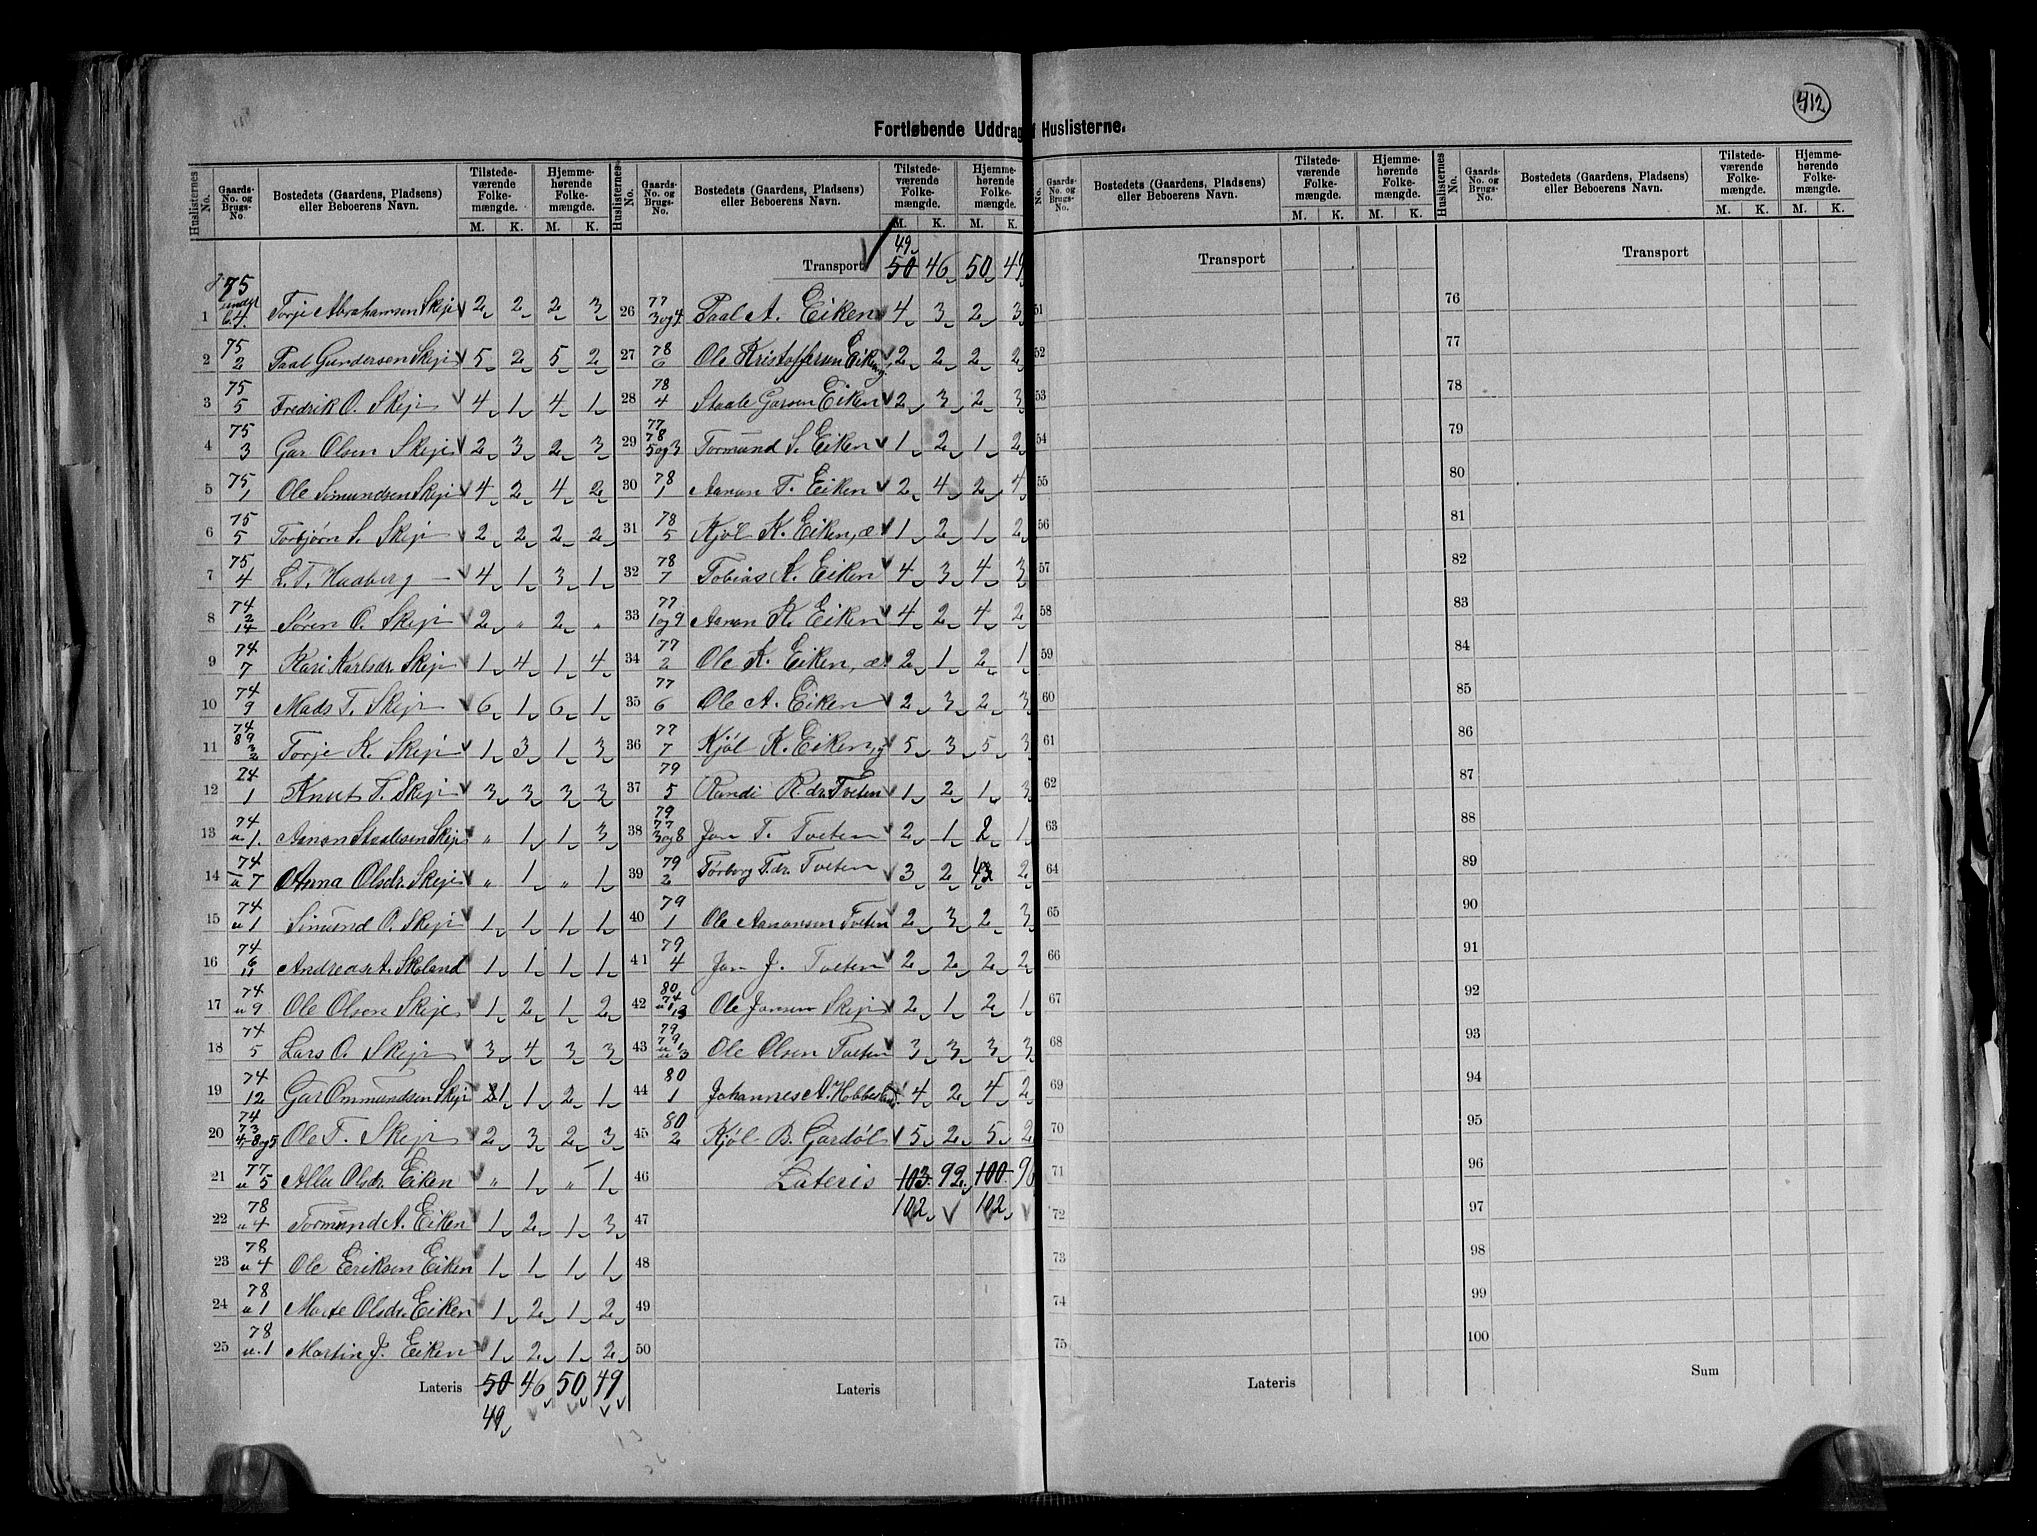 412
Fortløbende Uddrag Huslisterne.
Huslisternes No. | Gaards-No. og Brugs-No. | Bostedets (Gaardens, Pladsens) eller Beboerens Navn. | Tilstedeværende Folkemængde. M. K. | Hjemmehørende Folkemængde. M. K.
1 75 6.4. Torje Abrahamsen Skeje 2 2 2 3
2 75 2 Paal Gundersen Skeje 5 2 5 2
3 75 5 Fredrik O. Skeje 4 1 4 1
4 75 3 Gar Olsen Skeje 2 3 2 3
5 75 1 Ole Simundsen Skeje 4 2 4 2
6 75 5 Torbjørn S. Skeje 2 2 2 2
7 75 4 L. T. Haaberg 4 1 3 1
8 74 2 14 Søren O. Skeje 2 " 2 "
9 74 7 Kari Karlsdr. Skeje 1 4 1 4
10 74 9 Mads T. Skeje 6 1 6 1
11 74 89 3 2 Torje K. Skeje 1 3 1 3
12 24 1 Knut T. Skeje 3 3 3 3
13 74 u. 1. Aanon Staalesen Skeje " 1 1 3
14 74 u 7 Anna Olsdr. Skeje " 1 " 1
15 74 u 1 Simund O. Skeje 1 1 1 1
16 74 6 11 Andreas A. Skoland 1 1 1 1
17 74 u 9 Ole Olsen Skeje 1 2 1 2
18 74 5 Lars O. Skeje 3 4 3 3
19 74 12 Gar Ommundsen Skeje 1 1 2 1
20 74 73 4-8 og 5 Ole T. Skeje 2 3 2 3
21 77 u 5 Allu Olsdr. Eiken " 1 " 1
22 78 u 4 Tormund A. Eiken 1 2 1 3
23 78 u 4 Ole Eriksen Eiken 1 1 1 1
24 78 u 1 Marte Olsdr. Eiken 1 2 1 2
25 78 u. 1 Martin J. Eiken 1 2 1 2
Lateris 50 46 50 49
49
Huslisternes No. | Gaards-No. og Brugs-No. | Bostedets (Gaardens, Pladsens) eller Beboerens Navn. | Tilstedeværende Folkemængde. M. K. | Hjemmehørende Folkemængde. M. K.
49
Transport 50 46 50 49
26 77 3 og 4 Paal A. Eiken 4 3 2 3
27 78 6 Ole Kristoffersen Eiken 2 2 2 2
28 78 4 Staale Garsen Eiken 2 3 2 3
29 77 78 5 og 3 Tormund S. Eiken 1 2 1 2
30 78 1 Aanon T. Eiken 2 4 2 4
31 78 5 Kjøl K. Eiken, æ 1 2 1 2
32 78 7 Tobias K. Eiken 4 3 4 3
33 77 1 og 9 Aanon K. Eiken 4 2 4 2
34 77 2 Ole K. Eiken, æ. 2 1 2 1
35 77 6 Ole A. Eiken 2 3 2 3
36 77 7 Kjøl K. Eiken, y 5 3 5 3
37 79 5 Randi R. dr. Tveten 1 2 1 3
38 79 77 3 og 8 Jon T. Tveten 2 1 2 1
39 79 2 Tørborg T. dr. Tveten 3 2 3 2
40 79 1 Ole Aanonsen Tveten 2 3 2 3
41 79 4 Jon J. Tveten 2 2 2 2
42 80 74 u 1 13 Ole Jonsen Skeje 2 1 2 1
43 79 79 1 u 3 Ole Olsen Tveten 3 3 3 3
44 80 1 Johannes A. Hobbesland 4 2 4 2
45 80 2 Kjøl B. Gardøl 5 2 5 2
46 Lateris 103 92 100 9
47 102 102
48
49
50
Lateris
No. | Gaards-No. og Brugs-No. | Bostedets (Gaardens, Pladsens) eller Beboerens Navn. | Tilstedeværende Folkemængde. M. K. | Hjemmehørende Folkemængde. M. K.
Transport
51
52
53
54
55
56
57
58
59
60
61
62
63
64
65
66
67
68
69
70
71
72
73
74
75
Lateris
Huslisternes No. | Gaards-No. og Brugs-No. | Bostedets (Gaardens, Pladsens) eller Beboerens Navn. | Tilstedeværende Folkemængde. M. K. | Hjemmehørende Folkemængde. M. K.
Transport
76
77
78
79
80
81
82
83
84
85
86
87
88
89
90
91
92
93
94
95
96
97
98
99
100
Sum